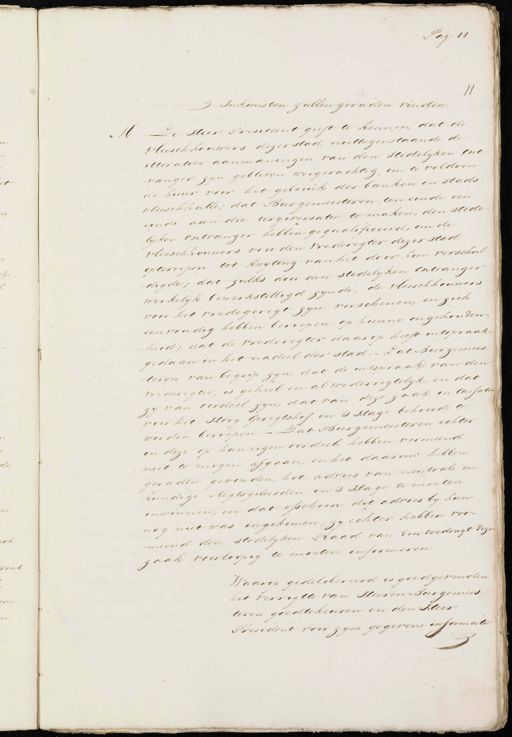 Pag. 11
11
Inkomsten zullen geraden vinden.
M De Heer President geeft te kennen, dat de
vleeschhouwers dezer stad niettegenstaande de
itterative aanmaningen van den stedelyken Ont
vanger zyn gebleven weigerachtig, om te voldoen
de huur voor het gebruik der banken in stads
vleeschhalle; dat Burgemeesteren, ten einde een
einde aan die tergiversatie te maken, den stede-
lyken Ontvanger hebben gequalificeerd, om de
vleeschhouwers voor den Vrederegter dezer stad
geroepen tot kwyting van het door hen verschul
digde; dat zulks door den stedelyken Ontvanger
werkelyk bewerkstelligd zynde, de vleeschhouwers
voor het vredegeregt zyn verschenen, en zich
eenvoudig hebben beroepen op hunne ongehouden-
heid; dat de Vrederegter daarop heeft uitspraak
gedaan in het nadeel der stad. - Dat Burgemees
teren van begrip zyn, dat de uitspraak van den
vrederegter, is geheel en al wederregtelyk en dat
zy van oordeel zyn, dat van deze zaak in Cassatie
voor het Hoog Geregtshof in 's Hage behoort te
worden beroepen. - Dat Burgemeesteren echter
in deze op hun eigen oordeel hebben vermeend
niet te mogen afgaan, en het daarom hebben
geraden gevonden, het advies van neutrale en
kundige Regtsgeleerden in 's Hage te moeten
inwinnen; en dat ofschoon dit advies by hen
nog niet was ingekomen zy echter hebben ver
meend den stedelyken Raad van den toedragt dezer
zaak voorloopig te moeten informeren.
Waarop gedelibereerd is goedgevonden
het verrigtte van Heeren Burgemees
teren goedtekeuren en den Heer
President voor zyne gegevene informatie